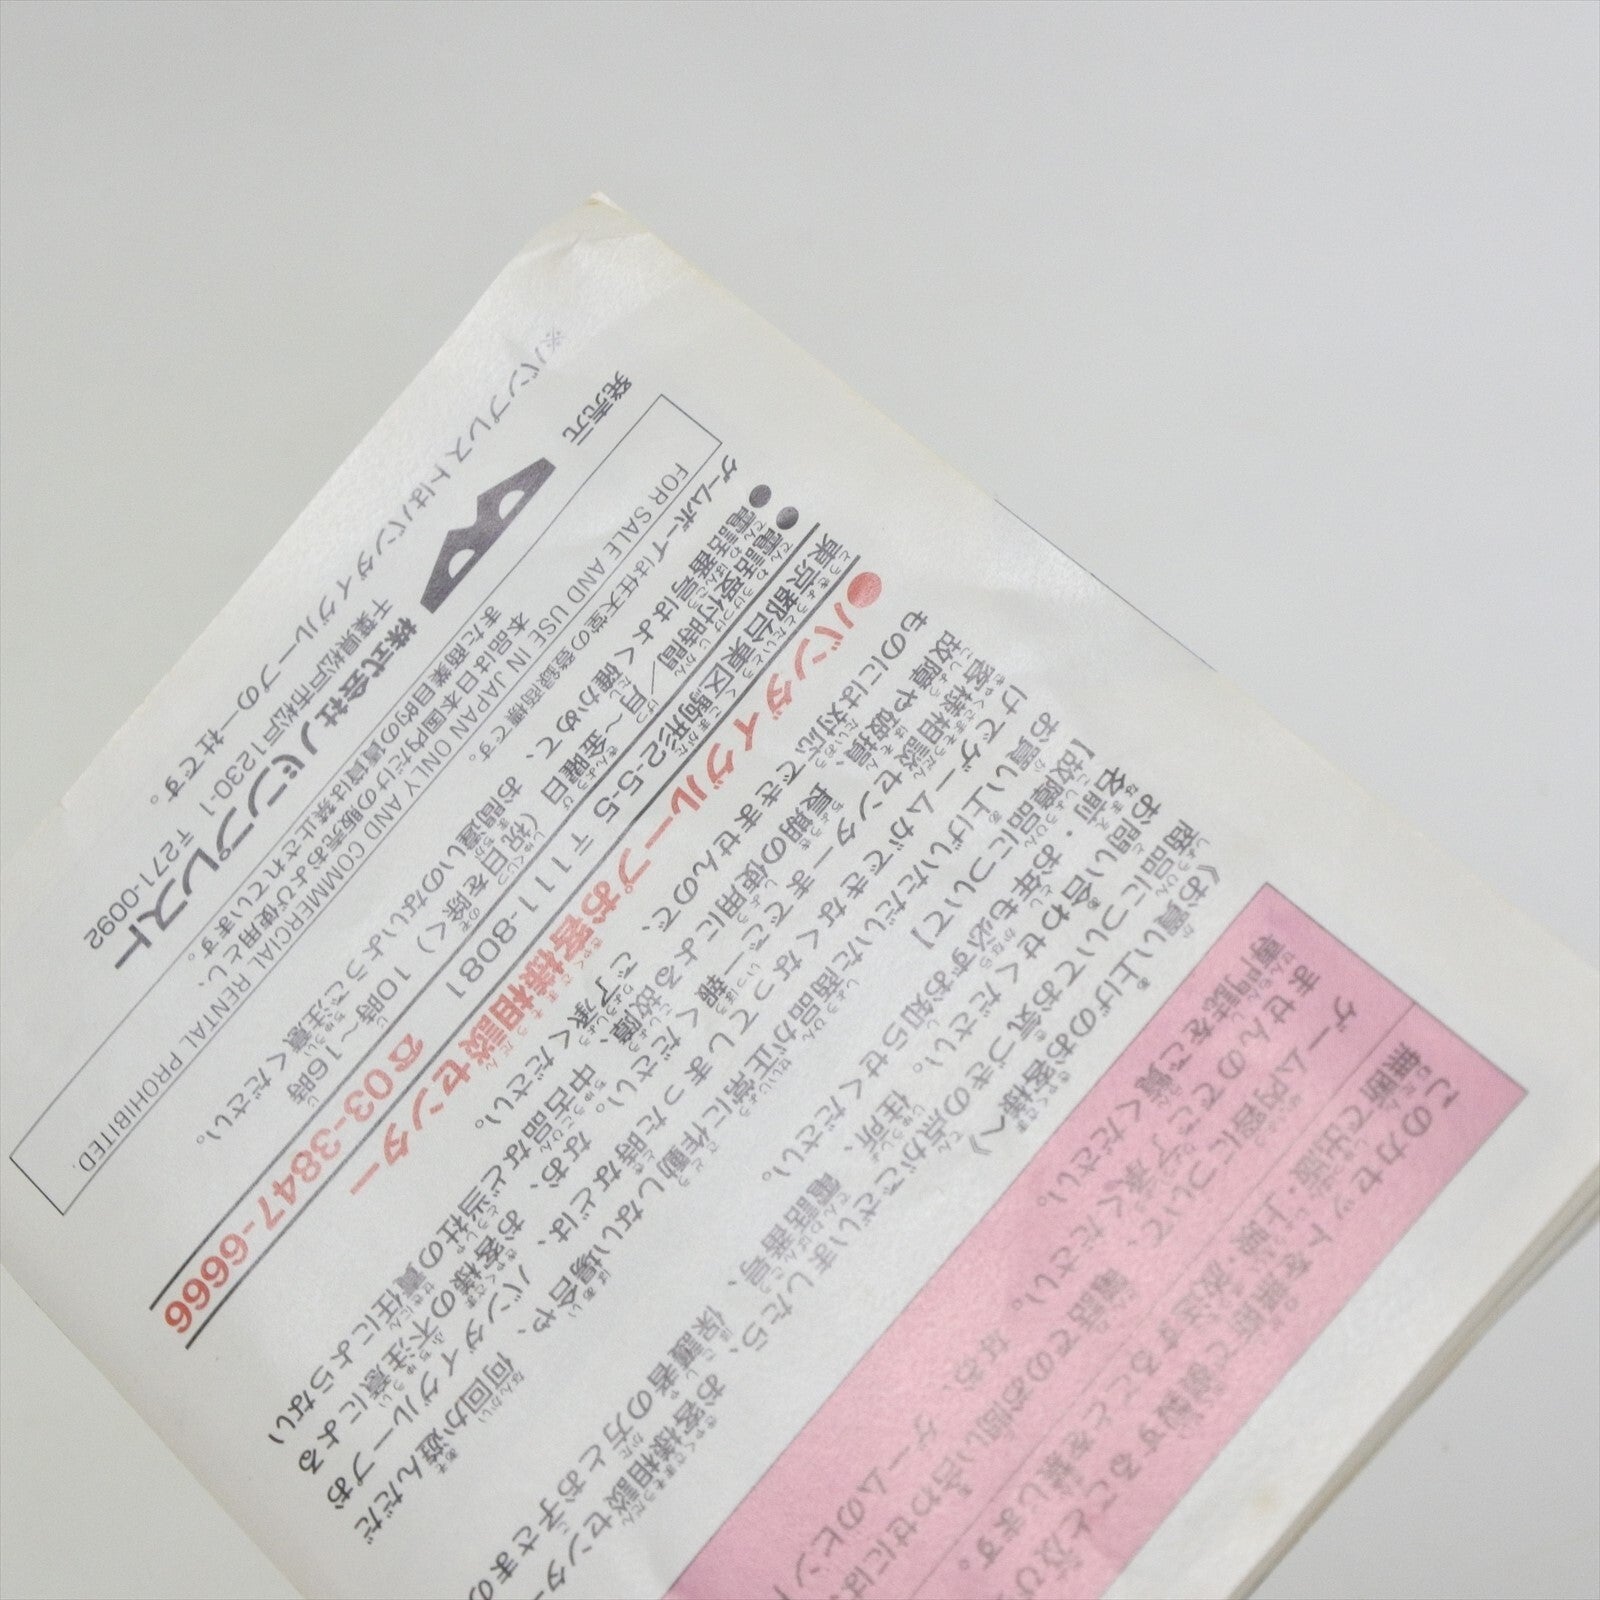 このカセットを無断で複製すること及び
無断で出版・上映・放送することを禁じます。
ゲーム内容について、電話でのお問い合わせには
ませんのでご了承ください。なお、ゲームのヒント
専門誌をご覧ください。
《お買い上げのお客様へ》
商品についてお気づきの点がございましたら、お客様相談センター
お問い合わせください。住所、電話番号、保護者の方とお子さまの
名前・お年も必ずお知らせください。
【故障品について】
お買い上げいただいた商品が正常に作動しない場合や、何回か遊んだだ
けでゲームができなくなってしまった時などは、バンダイグループお
客様相談センターまでご一報ください。なお、お客様の不注意による
故障や破損、長期の使用による故障、中古品など当社の責任によらない
ものには対応できませんので、ご了承ください。
●バンダイグループお客様相談センター
東京都台東区駒形2-5-5 〒111-8081 ☎03-3847-6666
●電話受付時間／月～金曜日（祝日を除く）10時～16時
●電話番号はよく確かめて、お間違いのないようご注意ください。
ゲームボーイは任天堂の登録商標です。
FOR SALE AND USE IN JAPAN ONLY AND COMMERCIAL RENTAL PROHIBITED.
本品は日本国内だけの販売および使用とし、
また商業目的の賃貸は禁止されています。
発売元 株式会社バンプレスト
千葉県松戸市松戸1230-1 〒271-0092
※バンプレストはバンダイグループの一社です。